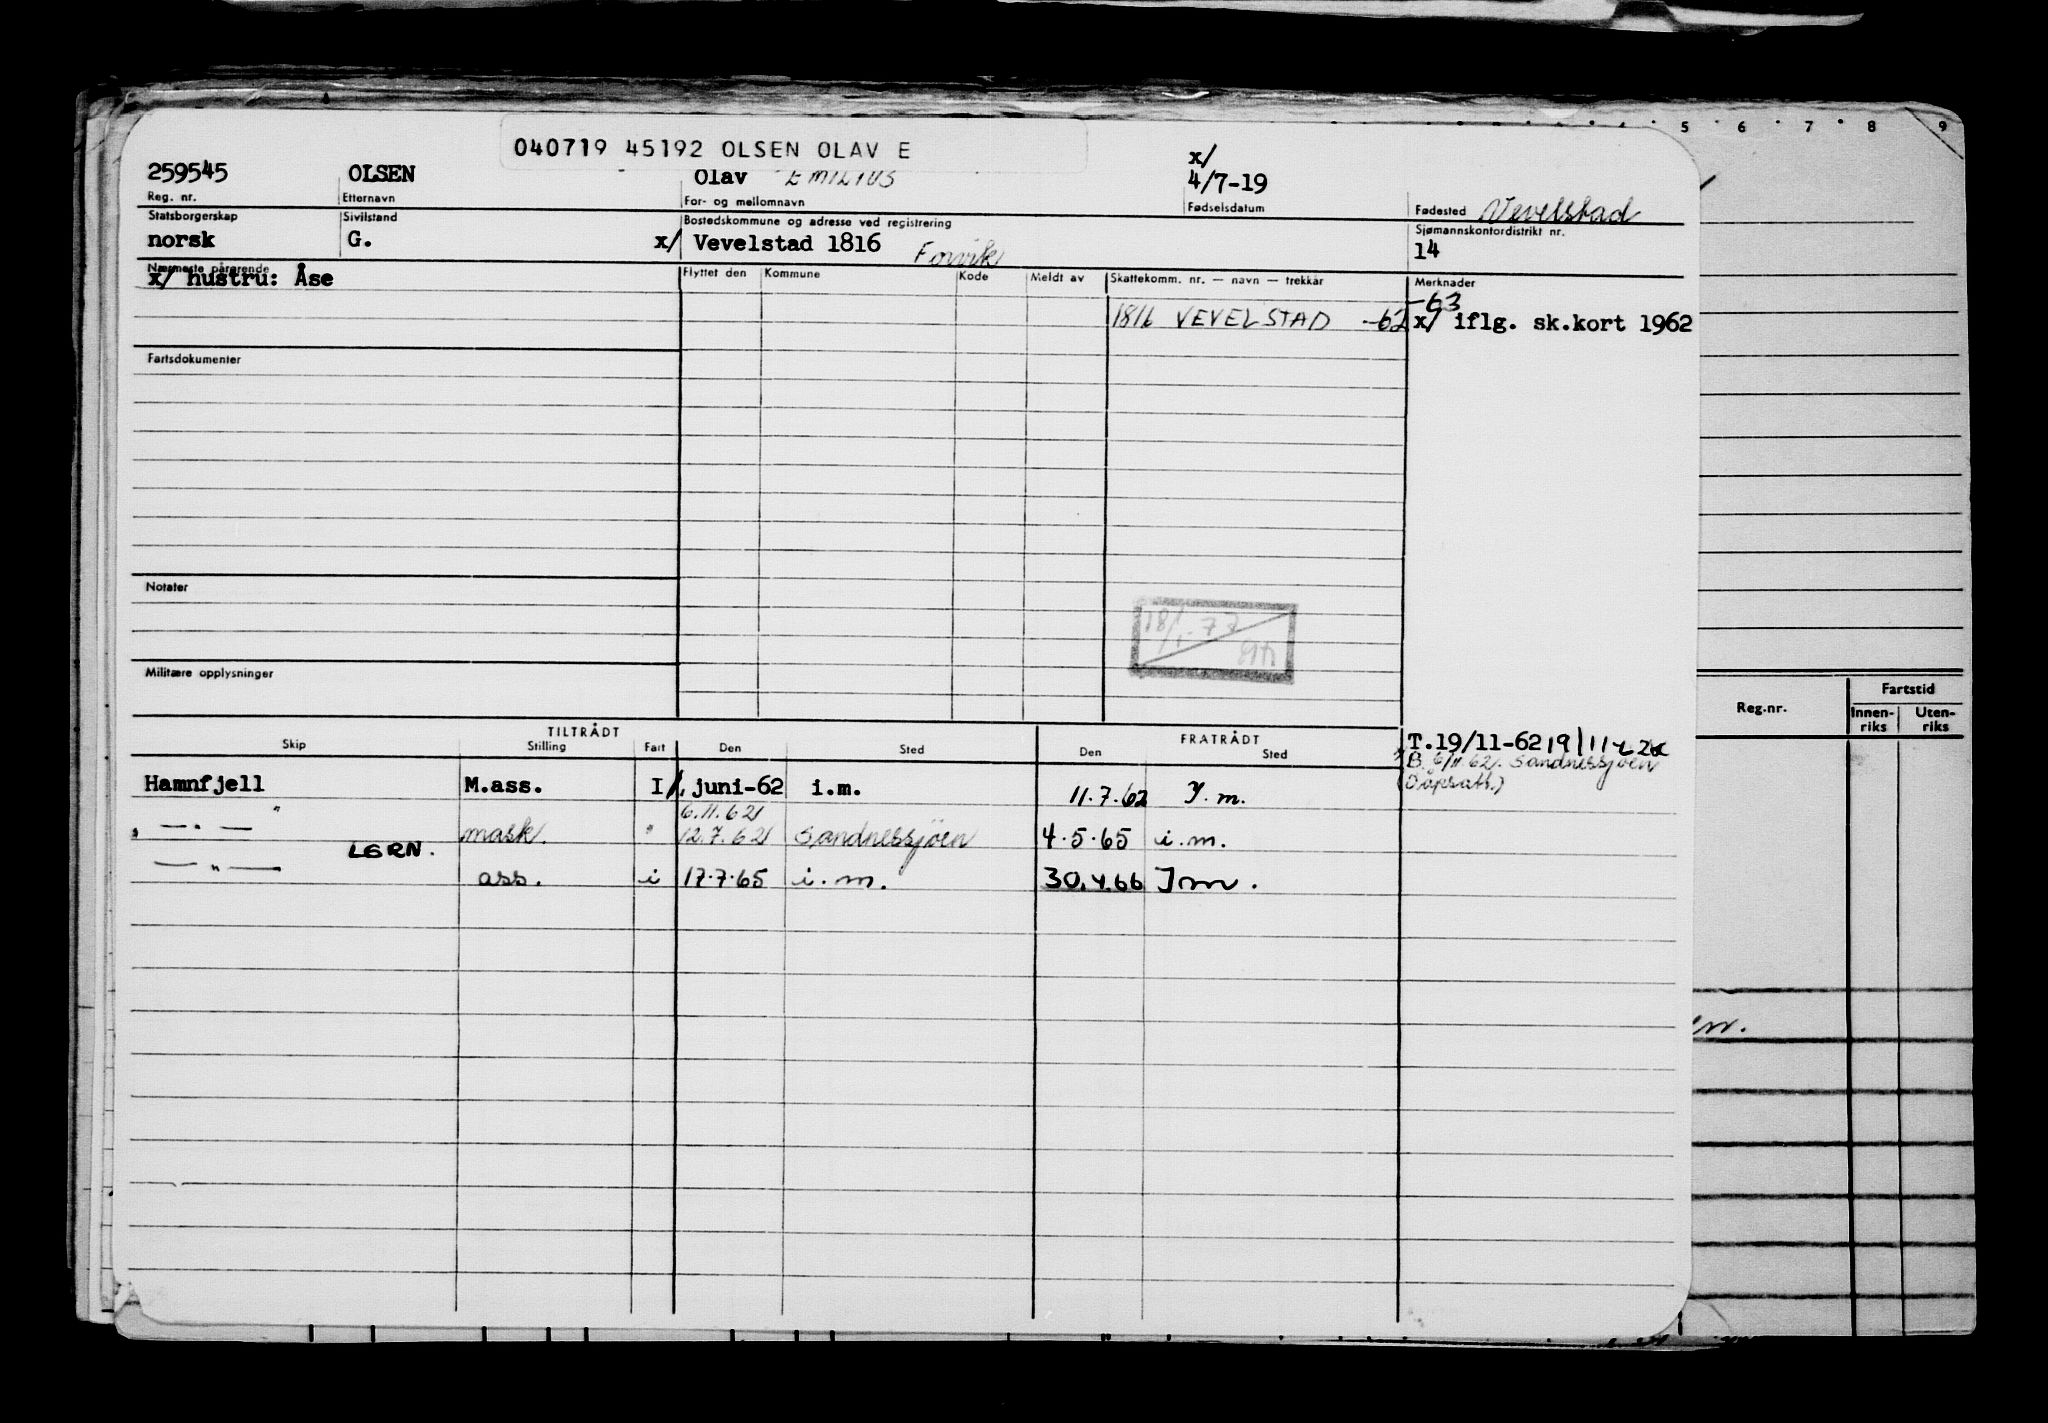 5 6 7 8 9
040719 45192 OLSEN OLAV E
259545 OLSEN Olav EMILIUS x/ 4/7-19
Reg. nr. Etternavn For- og mellomnavn Fødselsdatum Fødested Vevelstad
Statsborgerskap Sivilstand Bostedskommune og adresse ved registrering Sjømannskontordistrikt nr.
norsk G. x/ Vevelstad 1816 Forvik 14
Nærmeste pårørende Flyttet den Kommune Kode Meldt av Skattekomm. nr. — navn — trekkår Merknader
x/ hustru: Åse
-63
1816 VEVELSTAD -62 x/ iflg. sk.kort 1962
Fartsdokumenter
Notater
18/1-77
Militære opplysninger
Reg.nr. Fartstid
Innen-riks Uten-riks
TILTRÅDT FRATRÅDT
Skip Stilling Fart Den Sted Den Sted
T.19/11-62 19/11-62
B. 6/11.62. Sandnessjøen
Hamnfjell M.ass. I/. juni-62 i.m. 11.7.62 I.m.
6.11.62
— " — mask. " 12.7.62 Sandnessjøen 4.5.65 i.m.
LGRN.
— " — ass. i 17.7.65 i.m. 30.4.66 Im.